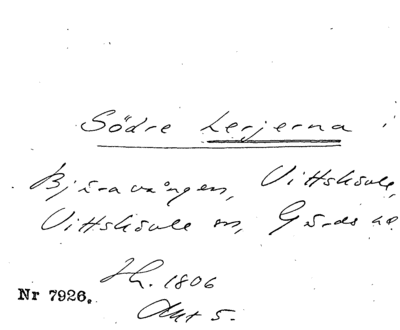 Södre Lerjerna
Bjäravången, Vittskövle,
Vittskövle sn, Gärds hd.
Sh. 1806
Akt 5.
Nr 7926.